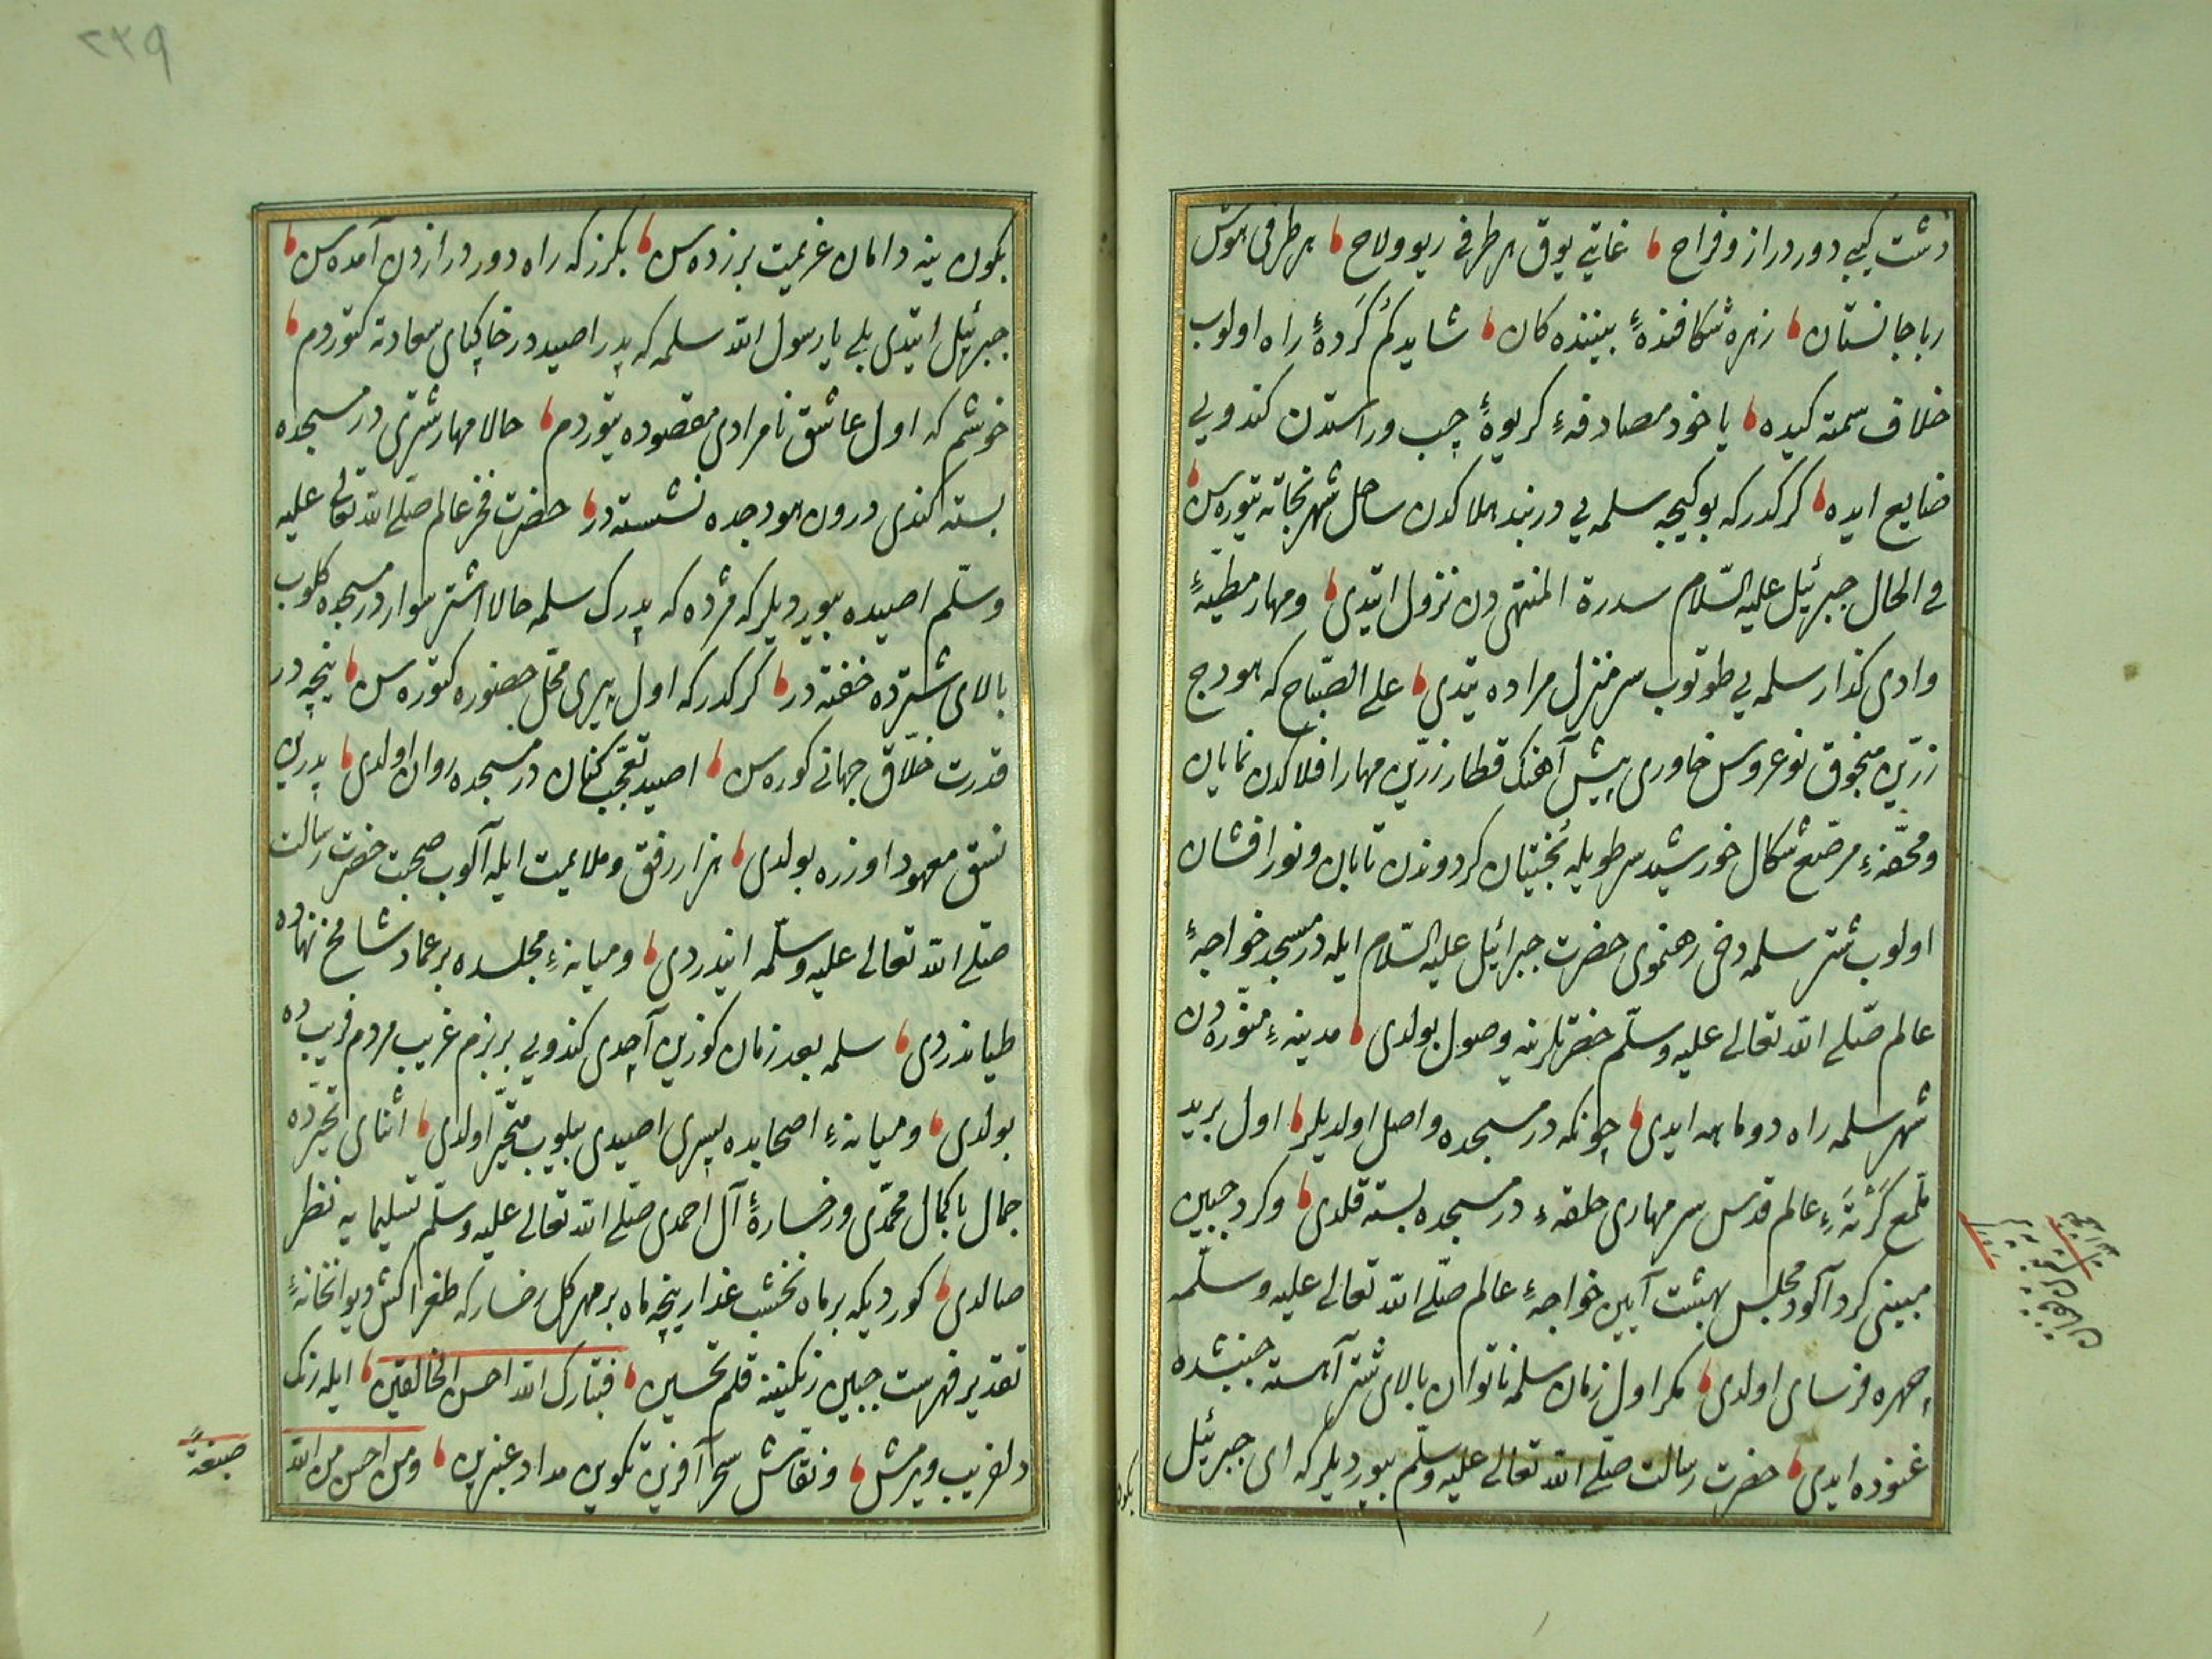 دشت كبی دور دراز و فراخ ، غایتی یوق هر طرفی ریو ولاخ ، هر طرفی هوش
ربا جانستان ، زهره شكافندهٔ بیننده كان ، شاید كم كردهٔ راه اولوب
خلاف سمته كیده ، یا خود مصادفهٔ كریوهٔ چپ و راستدن كندویی
ضایع ایده ، كركدر كه بو كیجه سلمه یی دربند هلاكدن ساحل شهر نجاته یتوره سن ،
فی الحال جبرئیل علیه السلام سدرة المنتهی دن نزول ایتدی ، و مهار مطیهٔ
وادی كذار سلمه یی طوتوب سر منزل مراده یتدی ، علی الصباح كه هودج
زرین منجوق نوعروس خاوری پیش آهنك قطار زرین مهار افلاكدن نمایان
و محفهٔ مرصع شكال خورشید سر طویله بختیان كردوندن تابان و نور افشان
اولوب شتر سلمه دخی رهنموی حضرت جبرائیل علیه السلام ایله در مسجد خواجهٔ
عالم صلی الله تعالی علیه وسلم حضرتلرینه وصول بولدی ، مدینهٔ منوره دن
شهر سلمه راه دو ماهه ایدی ، چونكه در مسجده واصل اولدیلر ، اول برید
عالم قدس سر مهاری حلقهٔ در مسجده بسته قلدی ، و كرد جبین
مبینی كرد آلود مجلس بهشت آیین خواجهٔ عالم صلی الله تعالی علیه وسلمه
چهره فرسای اولدی ، مكر اول زمان سلمه ناتوان بالای شتر آهسته جنبشده
غنوده ایدی ، حضرت رسالت صلی الله تعالی علیه وسلم بیوردیلر كه ای جبرئیل
بكون
بكون ینه دامان عزیمت برزده سن ، بكرز كه راه دور درازدن آمده سن ،
جبرئیل ایتدی بلی یا رسول الله سلمه كه پدر اصیددر خاكپای سعادته كتوردم ،
خوشم كه اول عاشق نامرادی مقصوده یتوردم ، حالا مهار شتری در مسجده
بسته كندی درون هودجده نشسته در ، حضرت فخر عالم صلی الله تعالی علیه
وسلم اصیده بیوردیلر كه مژده كه پدرك سلمه حالا اشتر سوار در مسجده كلوب
بالای شترده خفته در ، كركدر كه اول پیری محل حضوره كتوره سن ، نیچه در
قدرت خلاق جهانی كوره سن ، اصید تعجب كنان در مسجده روان اولدی ، پدرین
نسق معهود اوزره بولدی ، هزار رفق و ملایمت ایله آلوب صحبت حضرت رسالت
صلی الله تعالی علیه وسلمه ایندردی ، و میانهٔ مجلسده بر عماد شامخ نهاده
طیاندردی ، سلمه بعد زمان كوزین آچدی كندویی بر بزم غریب مردم فریب ده
بولدی ، و میانهٔ اصحابده پسری اصیدی بیلوب متحیر اولدی ، اثنای تحیرده
جمال با كمال محمدی و رخسارهٔ آل احمدی صلی الله تعالی علیه وسلم تسلیمایه نظر
صالدی ، كوردیكه بر ماه نخشب عذار ینچه ماه بر مهر كل رخسار كه طغرا كش دیوانخانهٔ
تقدیر فهرست جبین رنكینه قلم تحسین ، فتبارك الله احسن الخالقین ، ایله رنك
دلفریب ویرمش ، و نقاش سحر آفرین تكوین مداد عنبرین ، ومن احسن من الله
صبغة